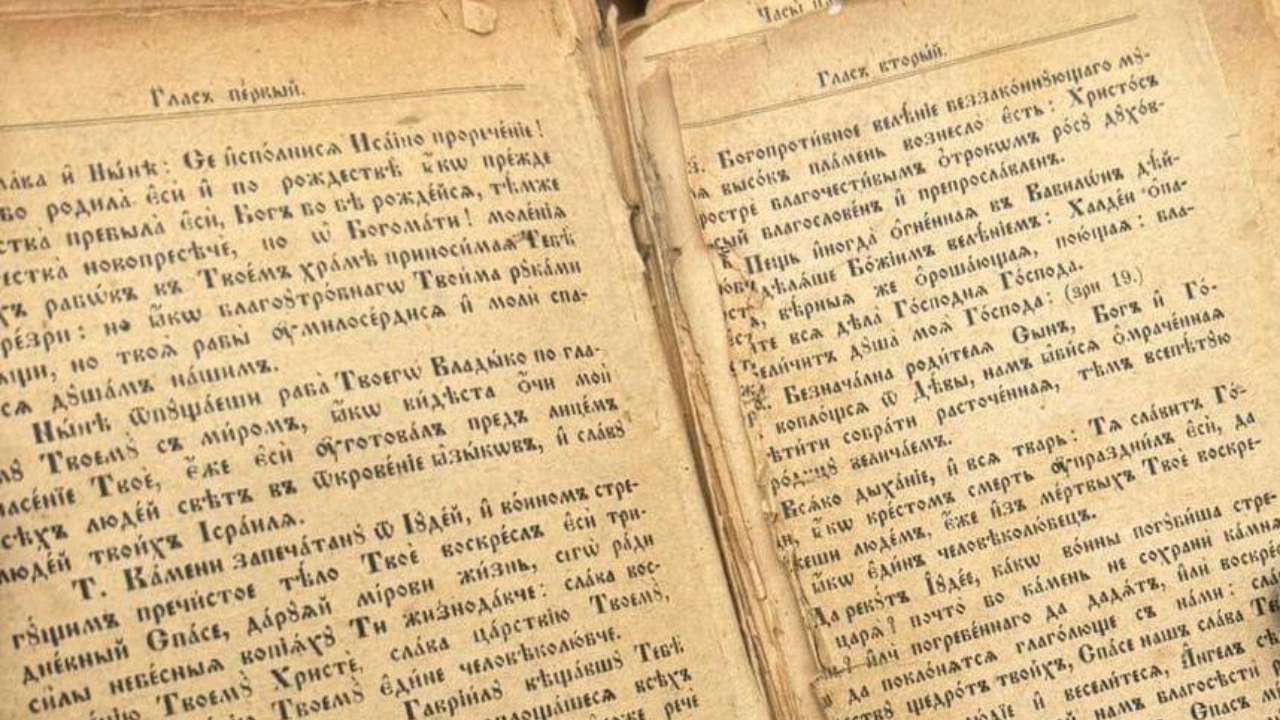 Гла́съ пе́рвый.
и҆ Ны́нѣ: Се и҆спо́лнисѧ Иса́їино прорече́нїе!
родила̀ є҆сѝ и҆ по рождествѣ̀ ꙗ҆́кѡ пре́жде
пребыла̀ є҆сѝ, Бо́гъ бо бѣ̀ рожде́йсѧ, тѣ́мже
новопресѣчѐ, но ѽ Богома́ти! моле́нїѧ
рабѡ́въ въ Твое́мъ хра́мѣ приноси́маѧ Тебѣ̀
но ꙗ҆́кѡ благоꙋтро́бнаго Твои́ма рꙋка́ми
но твоѧ̑ рабы̀ ᲂу҆милосе́рдисѧ и҆ молѝ спа-
сѧ дꙋша́мъ на́шимъ.
Ны́нѣ ѿпꙋща́еши раба̀ Твоего̀ Влады́ко по гла-
Твоемꙋ̀ съ ми́ромъ, ꙗ҆́кѡ ви́дѣста ѻ҆́чи моѝ
Твоѐ, є҆́же є҆сѝ ᲂу҆гото́валъ предъ лице́мъ
люде́й свѣ́тъ въ ѿкрове́нїе ꙗ҆зы́кѡвъ, и҆ сла́вꙋ
люде́й твои́хъ І҆сра́илѧ.
Т. Ка́мени запеча́танꙋ ѿ І҆ꙋде́й, и҆ во́инѡмъ стре-
гꙋ́щимъ пречи́стое тѣ́ло Твоѐ воскре́слъ є҆сѝ три-
дне́вный Спа́се, да́рꙋѧй мі́рови жи́знь, сегѡ̀ ра́ди
си̑лы небе́сныѧ вопїѧ́хꙋ Тѝ жизнода́вче: сла́ва вос-
Твоемꙋ̀ Христѐ, сла́ва ца́рствїю Твоемꙋ̀,
Твоемꙋ̀ є҆ди́не человѣколю́бче.
Гаврїи́лꙋ вѣща́вшꙋ Тебѣ̀
всѣ́хъ
речѐ
Часы̀
Гла́съ вторы́й.
Богопроти́вное велѣ́нїе беззако́ннꙋющаго мꙋ-
высо́къ пла́мень вознесло̀ є҆́сть: Христо́съ
благочести̑вымъ ѻ҆трокѡ́мъ ро́сꙋ дꙋхо́в-
благослове́нъ и҆ препросла́вленъ.
Пе́щь и҆ногда̀ ѻ҆́гненнаѧ въ Вавилѡ́нѣ дѣ̑й-
Бо́жїимъ велѣ́нїемъ: Халде́и ѡ҆палѧ́-
вѣ̑рныѧ же ѡ҆роша́ющаѧ, пою́щаѧ: бла-
всѧ̑ дѣла̀ Госпо́днѧ Го́спода.
дꙋша̀ моѧ̀ Го́спода: (зри 19.)
Безнача́льна роди́телѧ Сы́нъ, Бо́гъ и҆ Го́-
вопло́щсѧ ѿ Дѣ́вы, на́мъ ꙗ҆ви́сѧ ѡ҆мраче́ннаѧ
собра́ти расточе́ннаѧ, тѣ́мъ всепѣ́тꙋю
велича́емъ.
Всѧ́ко дыха́нїе, и҆ всѧ̀ тва́рь: Тѧ̀ сла́витъ Го́-
ꙗ҆́кѡ кресто́мъ сме́рть ᲂу҆праздни́лъ є҆сѝ, да
лю́демъ, є҆́же и҆з̾ ме́ртвыхъ Твоѐ воскре-
ꙗ҆́кѡ є҆ди́нъ человѣколю́бецъ.
Да рекꙋ́тъ І҆ꙋде́є, ка́кѡ во́ини погꙋби́ша стре-
царѧ̀? почто̀ бо ка́мень не сохранѝ ка́мнѧ
и҆лѝ погребе́ннаго да дадѧ́тъ, и҆лѝ воскре́с-
да поклонѧ́тсѧ глаго́люще съ на́ми: сла́-
щедро́тъ твои́хъ, Спа́се на́шъ сла́ва Те-
и҆ весели́тесѧ, А҆́нгелъ
на́мъ благовѣстѝ
Спа́съ